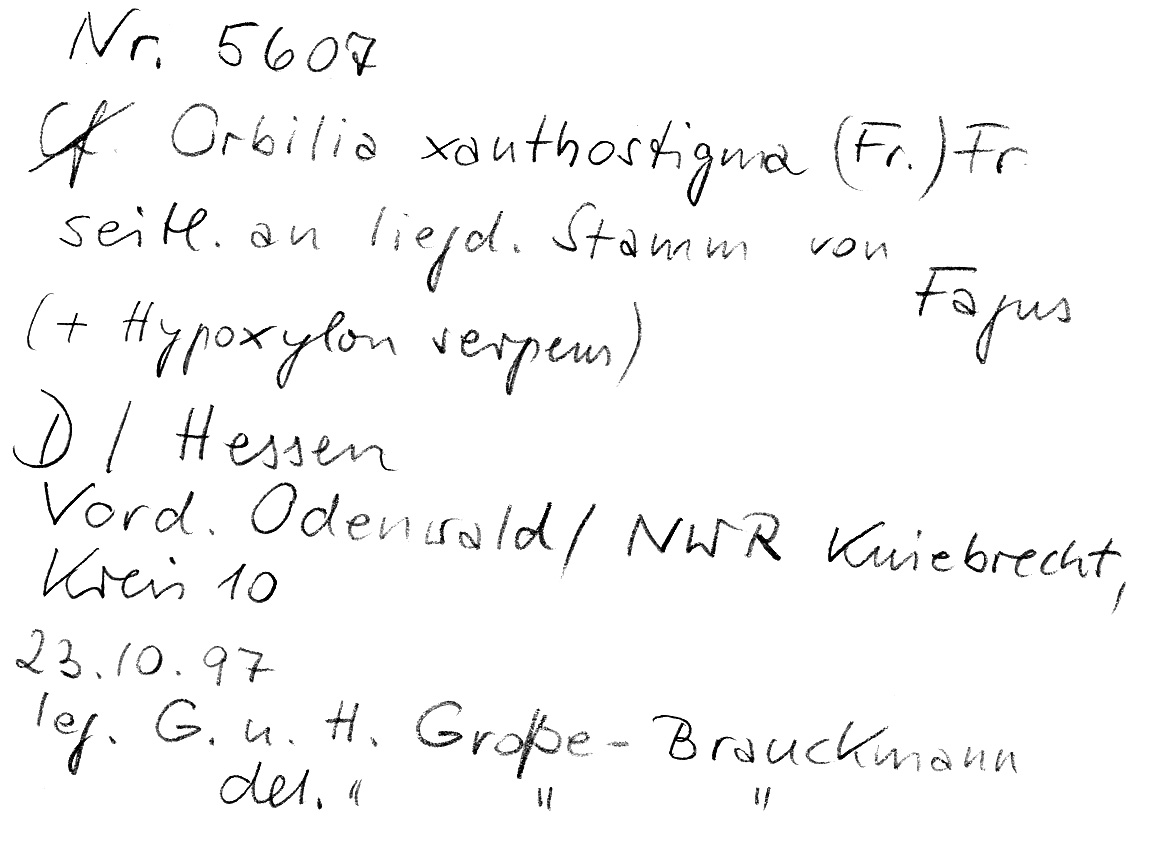 Nr. 5607
Cf. Orbilia xanthostigma (Fr.) Fr.
seitl. an liegd. Stamm von Fagus
(+ Hypoxylon serpens)
D / Hessen
Vord. Odenwald / NWR Kniebrecht,
Kreis 10
23.10.97
leg. G. u. H. Große-Brauckmann
det. " " "